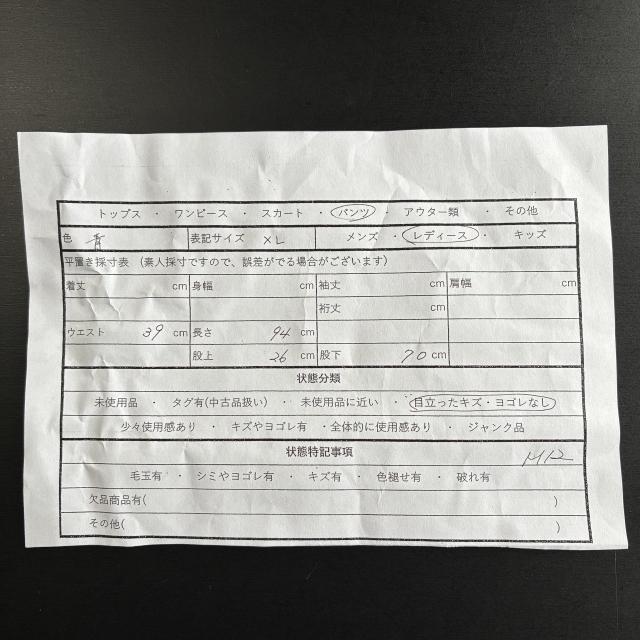 トップス ・ ワンピース ・ スカート ・ パンツ ・ アウター類 ・ その他
色 青 表記サイズ XL メンズ ・ レディース ・ キッズ
平置き採寸表 (素人採寸ですので、誤差がでる場合がございます)
着丈 cm 身幅 cm 袖丈 cm 肩幅 cm
裄丈 cm
ウエスト 39 cm 長さ 94 cm
股上 26 cm 股下 70 cm
状態分類
未使用品 ・ タグ有(中古品扱い) ・ 未使用品に近い ・ 目立ったキズ・ヨゴレなし
少々使用感あり ・ キズやヨゴレ有 ・全体的に使用感あり ・ ジャンク品
状態特記事項
毛玉有 ・ シミやヨゴレ有 ・ キズ有 ・ 色褪せ有 ・ 破れ有
欠品商品有( )
その他( )